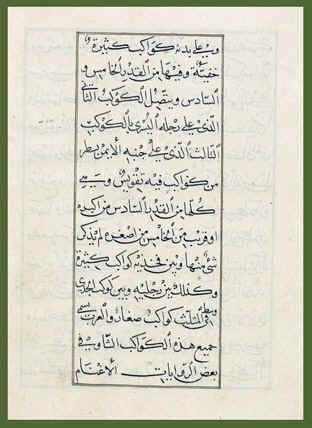 وعلى بدنه كواكب كثيرة
خفيّة وفيها من القدر الخامس و
السادس ويتصل الكوكب الثاني
الذي على رجله اليسرى بالكوكب
الثالث الذي على جنبه الأيمن بسطر
من كواكب فيه تقويس وسمى
كلها من القدر السادس من اكبره
او قريب من الخامس من اصغره لم يذكر
شيء منها وبين فخذيه كواكب كثيرة
وكذلك بين رجليه وبين كوكب الجدي
وفي المثلث كواكب صغار والعرب تسمى
جميع هذه الكواكب التي في
بعض الروايات الاغنام